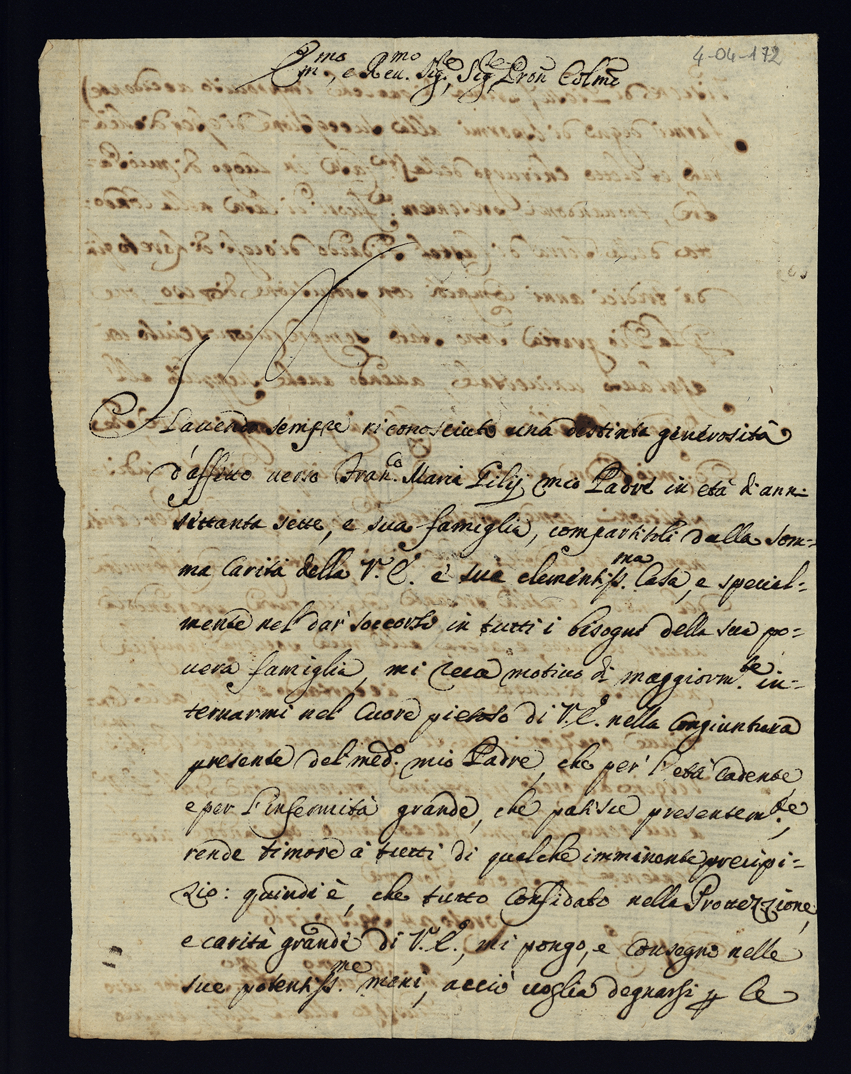 4-04-172
Em.mo, e Reu.mo Sig.re, Sig.re Pron Colmo
Hauendo sempre riconosciuto una destinta generosità
d'affetto uerso Fran.co Maria Pilij mio Padre in età di ann-
settanta sette, e sua famiglia, compartitoli dalla som-
ma Carità della V.E. e sue clementiss.ma Casa, e special-
mente nel dar' soccorso in tutti i bisogni della sua po-
uera famiglia, mi reca motiuo di maggiorm.te in-
ternarmi nel Cuore pietoso di V.E. nella Congiuntura
presente del med.o mio Padre, che per l'età Cadente
e per l'infermità grande, che patisce presentem.te,
rende timore à tutti di qualche imminente precipi-
zio: quindi è, che tutto Confidato nella Protezzione,
e carità grande di V.E., mi pongo, e consegno nelle
sue potentiss.me mani, acciò uoglia degnarsi p le